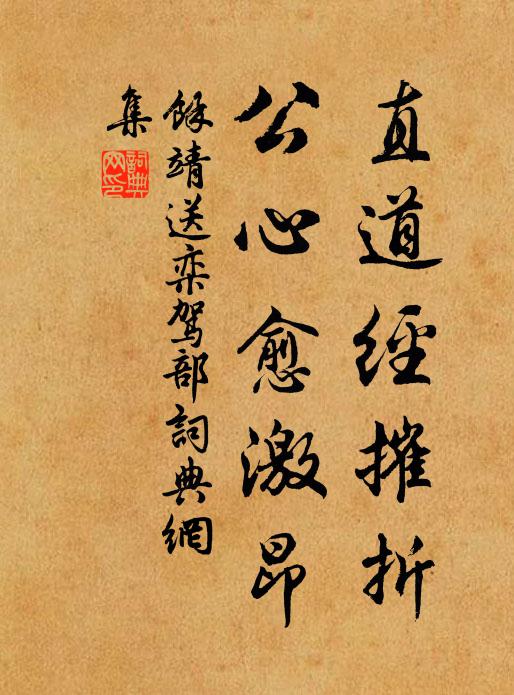 直道經摧折
公心愈激昂
餘靖送栾駕部詞典網
集
詞典
网印